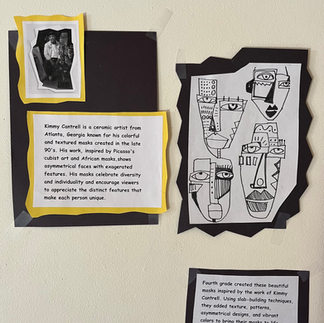 Kimmy Cantrell is a ceramic artist from
Atlanta, Georgia known for his colorful
and textured masks created in the late
90's. His work, inspired by Picasso's
cubist art and African masks,shows
asymmetrical faces with exagerated
features. His masks celebrate diversity
and individuality and encourage viewers
to appreciate the distinct features that
make each person unique.
Fourth grade created these beautiful
masks inspired by the work of Kimmy
Cantrell. Using slab-building techniques,
they added texture, patterns,
asymmetrical designs, and vibrant
colors to bring their masks to life